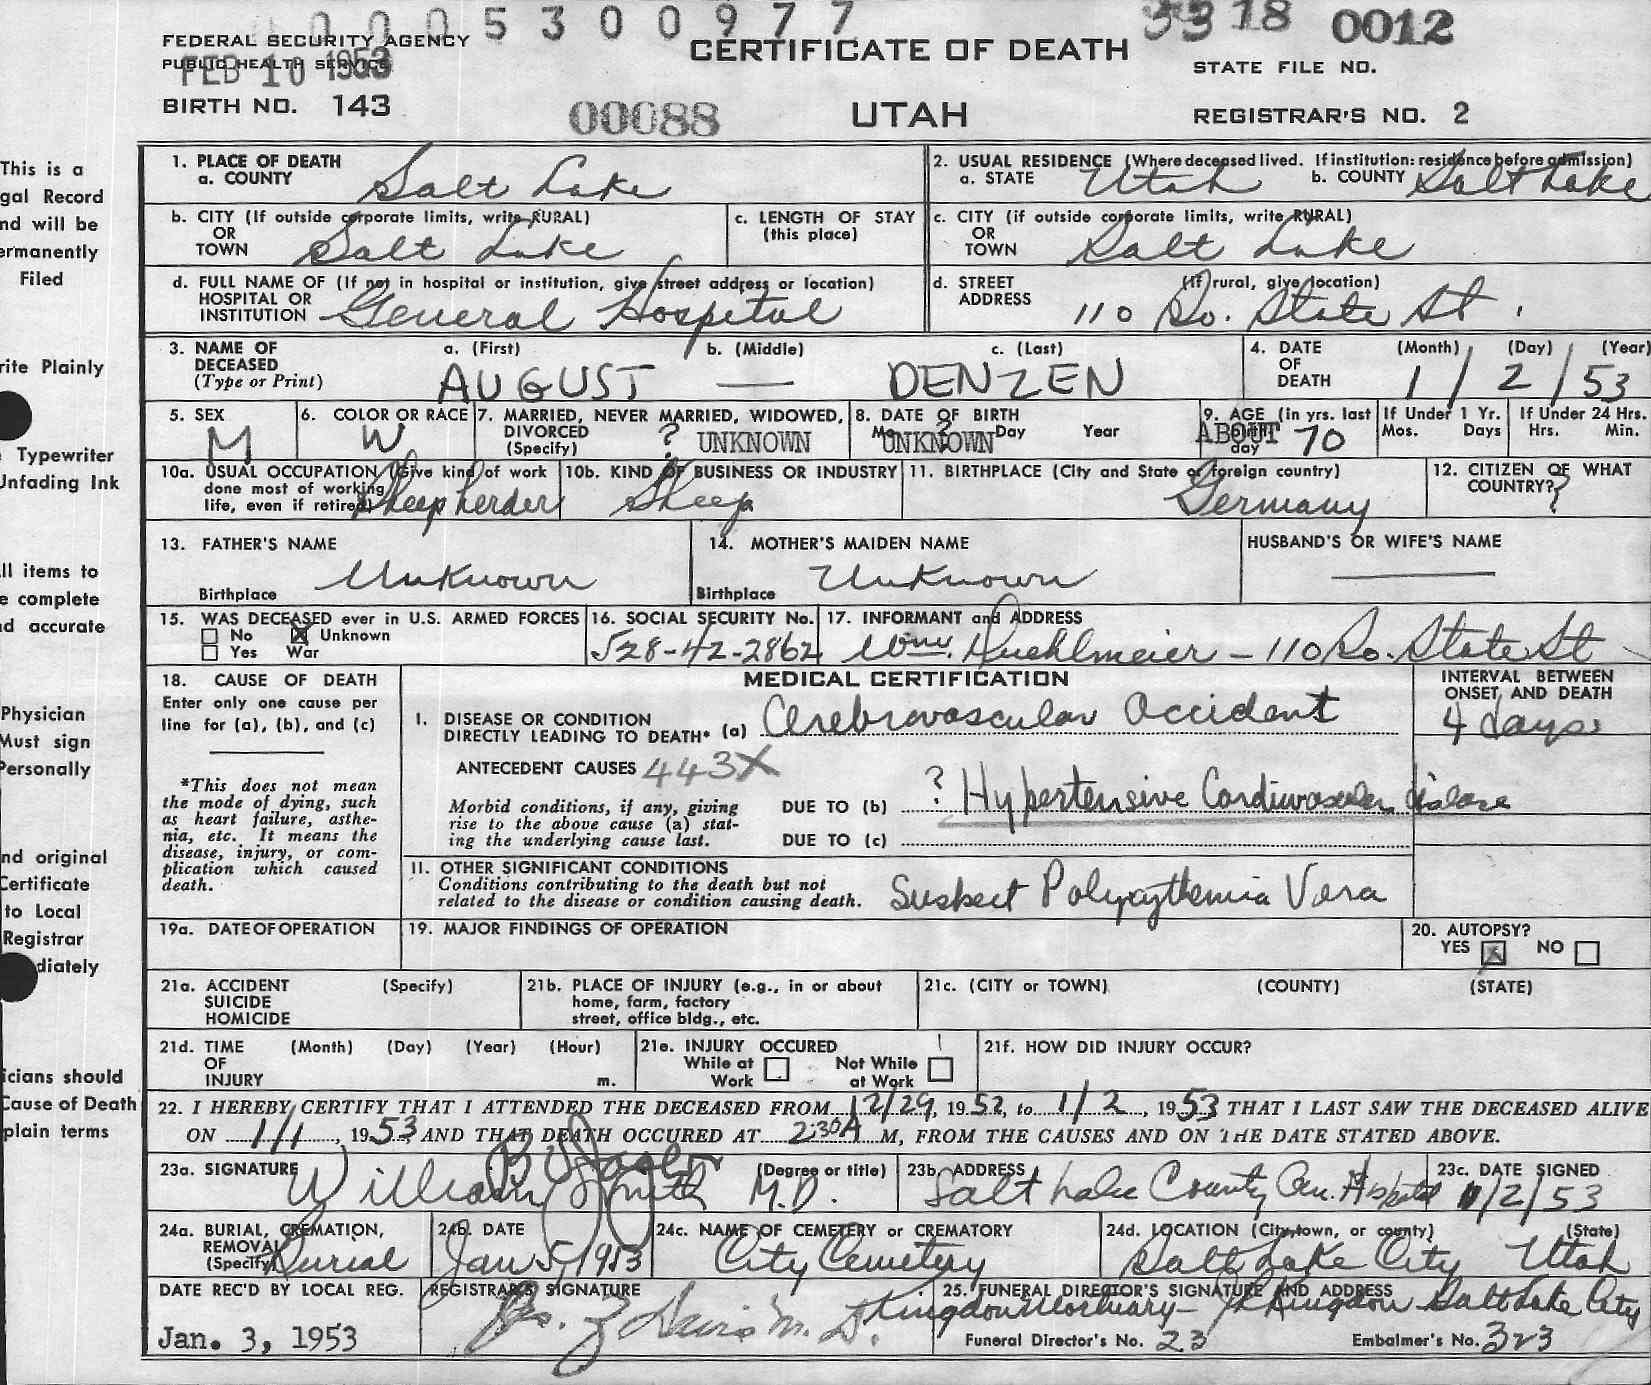 0005300977
3318 0012
FEDERAL SECURITY AGENCY
PUBLIC HEALTH SERVICE
FEB 10 1953
CERTIFICATE OF DEATH
STATE FILE NO.
BIRTH NO. 143
00088
UTAH
REGISTRAR'S NO. 2
This is a
gal Record
nd will be
ermanently
Filed
rite Plainly
Typewriter
Unfading Ink
ll items to
e complete
nd accurate
Physician
Must sign
Personally
nd original
Certificate
to Local
Registrar
diately
icians should
Cause of Death
plain terms
1. PLACE OF DEATH
a. COUNTY Salt Lake
2. USUAL RESIDENCE (Where deceased lived. If institution: residence before admission)
a. STATE Utah b. COUNTY Salt Lake
b. CITY (If outside corporate limits, write RURAL)
OR
TOWN Salt Lake
c. LENGTH OF STAY
(this place)
c. CITY (if outside corporate limits, write RURAL)
OR
TOWN Salt Lake
d. FULL NAME OF (If not in hospital or institution, give street address or location)
HOSPITAL OR
INSTITUTION General Hospital
d. STREET (If rural, give location)
ADDRESS 110 So. State St.
3. NAME OF DECEASED
(Type or Print)
a. (First) b. (Middle) c. (Last)
AUGUST — DENZEN
4. DATE OF DEATH (Month) (Day) (Year)
1 / 2 / 53
5. SEX
M
6. COLOR OR RACE
W
7. MARRIED, NEVER MARRIED, WIDOWED,
DIVORCED
(Specify) ? UNKNOWN
8. DATE OF BIRTH
Mo. Day Year
? UNKNOWN
9. AGE (in yrs. last
birthday
ABOUT 70
If Under 1 Yr.
Mos. Days
If Under 24 Hrs.
Hrs. Min.
10a. USUAL OCCUPATION (Give kind of work
done most of working
life, even if retired) Sheepherder
10b. KIND OF BUSINESS OR INDUSTRY
Sheep
11. BIRTHPLACE (City and State or foreign country)
Germany
12. CITIZEN OF WHAT
COUNTRY?
?
13. FATHER'S NAME
Unknown
Birthplace
14. MOTHER'S MAIDEN NAME
Unknown
Birthplace
HUSBAND'S OR WIFE'S NAME
—
15. WAS DECEASED ever in U.S. ARMED FORCES
No X Unknown
Yes War
16. SOCIAL SECURITY No.
528-42-2862
17. INFORMANT and ADDRESS
Wm. Duehlmeier - 110 So. State St
18. CAUSE OF DEATH
Enter only one cause per
line for (a), (b), and (c)
*This does not mean
the mode of dying, such
as heart failure, asthe-
nia, etc. It means the
disease, injury, or com-
plication which caused
death.
MEDICAL CERTIFICATION
INTERVAL BETWEEN
ONSET AND DEATH
I. DISEASE OR CONDITION
DIRECTLY LEADING TO DEATH* (a) Cerebrovascular Accident
4 days
ANTECEDENT CAUSES 443X
Morbid conditions, if any, giving
rise to the above cause (a) stat-
ing the underlying cause last.
DUE TO (b) ? Hypertensive Cardiovascular disease
DUE TO (c)
II. OTHER SIGNIFICANT CONDITIONS
Conditions contributing to the death but not
related to the disease or condition causing death.
Suspect Polycythemia Vera
19a. DATE OF OPERATION
19. MAJOR FINDINGS OF OPERATION
20. AUTOPSY?
YES X NO
21a. ACCIDENT (Specify)
SUICIDE
HOMICIDE
21b. PLACE OF INJURY (e.g., in or about
home, farm, factory
street, office bldg., etc.
21c. (CITY or TOWN) (COUNTY) (STATE)
21d. TIME (Month) (Day) (Year) (Hour)
OF
INJURY m.
21e. INJURY OCCURED
While at Work Not While at Work
21f. HOW DID INJURY OCCUR?
22. I HEREBY CERTIFY THAT I ATTENDED THE DECEASED FROM 12/29, 1952, to 1/2, 1953 THAT I LAST SAW THE DECEASED ALIVE
ON 1/1, 1953 AND THAT DEATH OCCURED AT 2:30A M, FROM THE CAUSES AND ON THE DATE STATED ABOVE.
23a. SIGNATURE (Degree or title)
William Smith M.D.
23b. ADDRESS
Salt Lake County Gen. Hospital
23c. DATE SIGNED
1/2/53
24a. BURIAL, CREMATION,
REMOVAL
(Specify) Burial
24b. DATE
Jan 5, 1953
24c. NAME OF CEMETERY or CREMATORY
City Cemetery
24d. LOCATION (City, town, or county) (State)
Salt Lake City Utah
DATE REC'D BY LOCAL REG.
Jan. 3, 1953
REGISTRAR'S SIGNATURE
M.D.
25. FUNERAL DIRECTOR'S SIGNATURE AND ADDRESS
Kingdon Mortuary - Kingdon Salt Lake City
Funeral Director's No. 23 Embalmer's No. 323